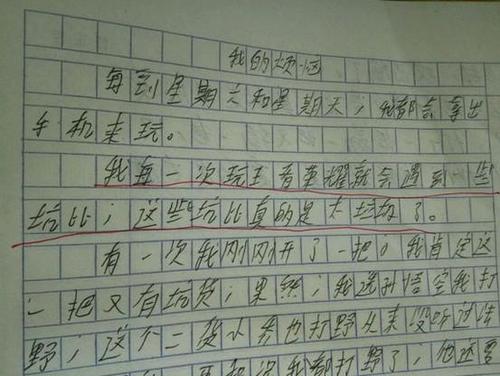 我的烦恼
每到星期六和星期天，我都会拿出
手机来玩。
我每一次玩王者荣耀就会遇到一些
坑比，这些坑比真的是太垃圾了。
有一次我刚刚开了一把。我肯定这
一把又有坑货，果然，我选孙悟空我打
野，这个二货小
我都打野了，他还要